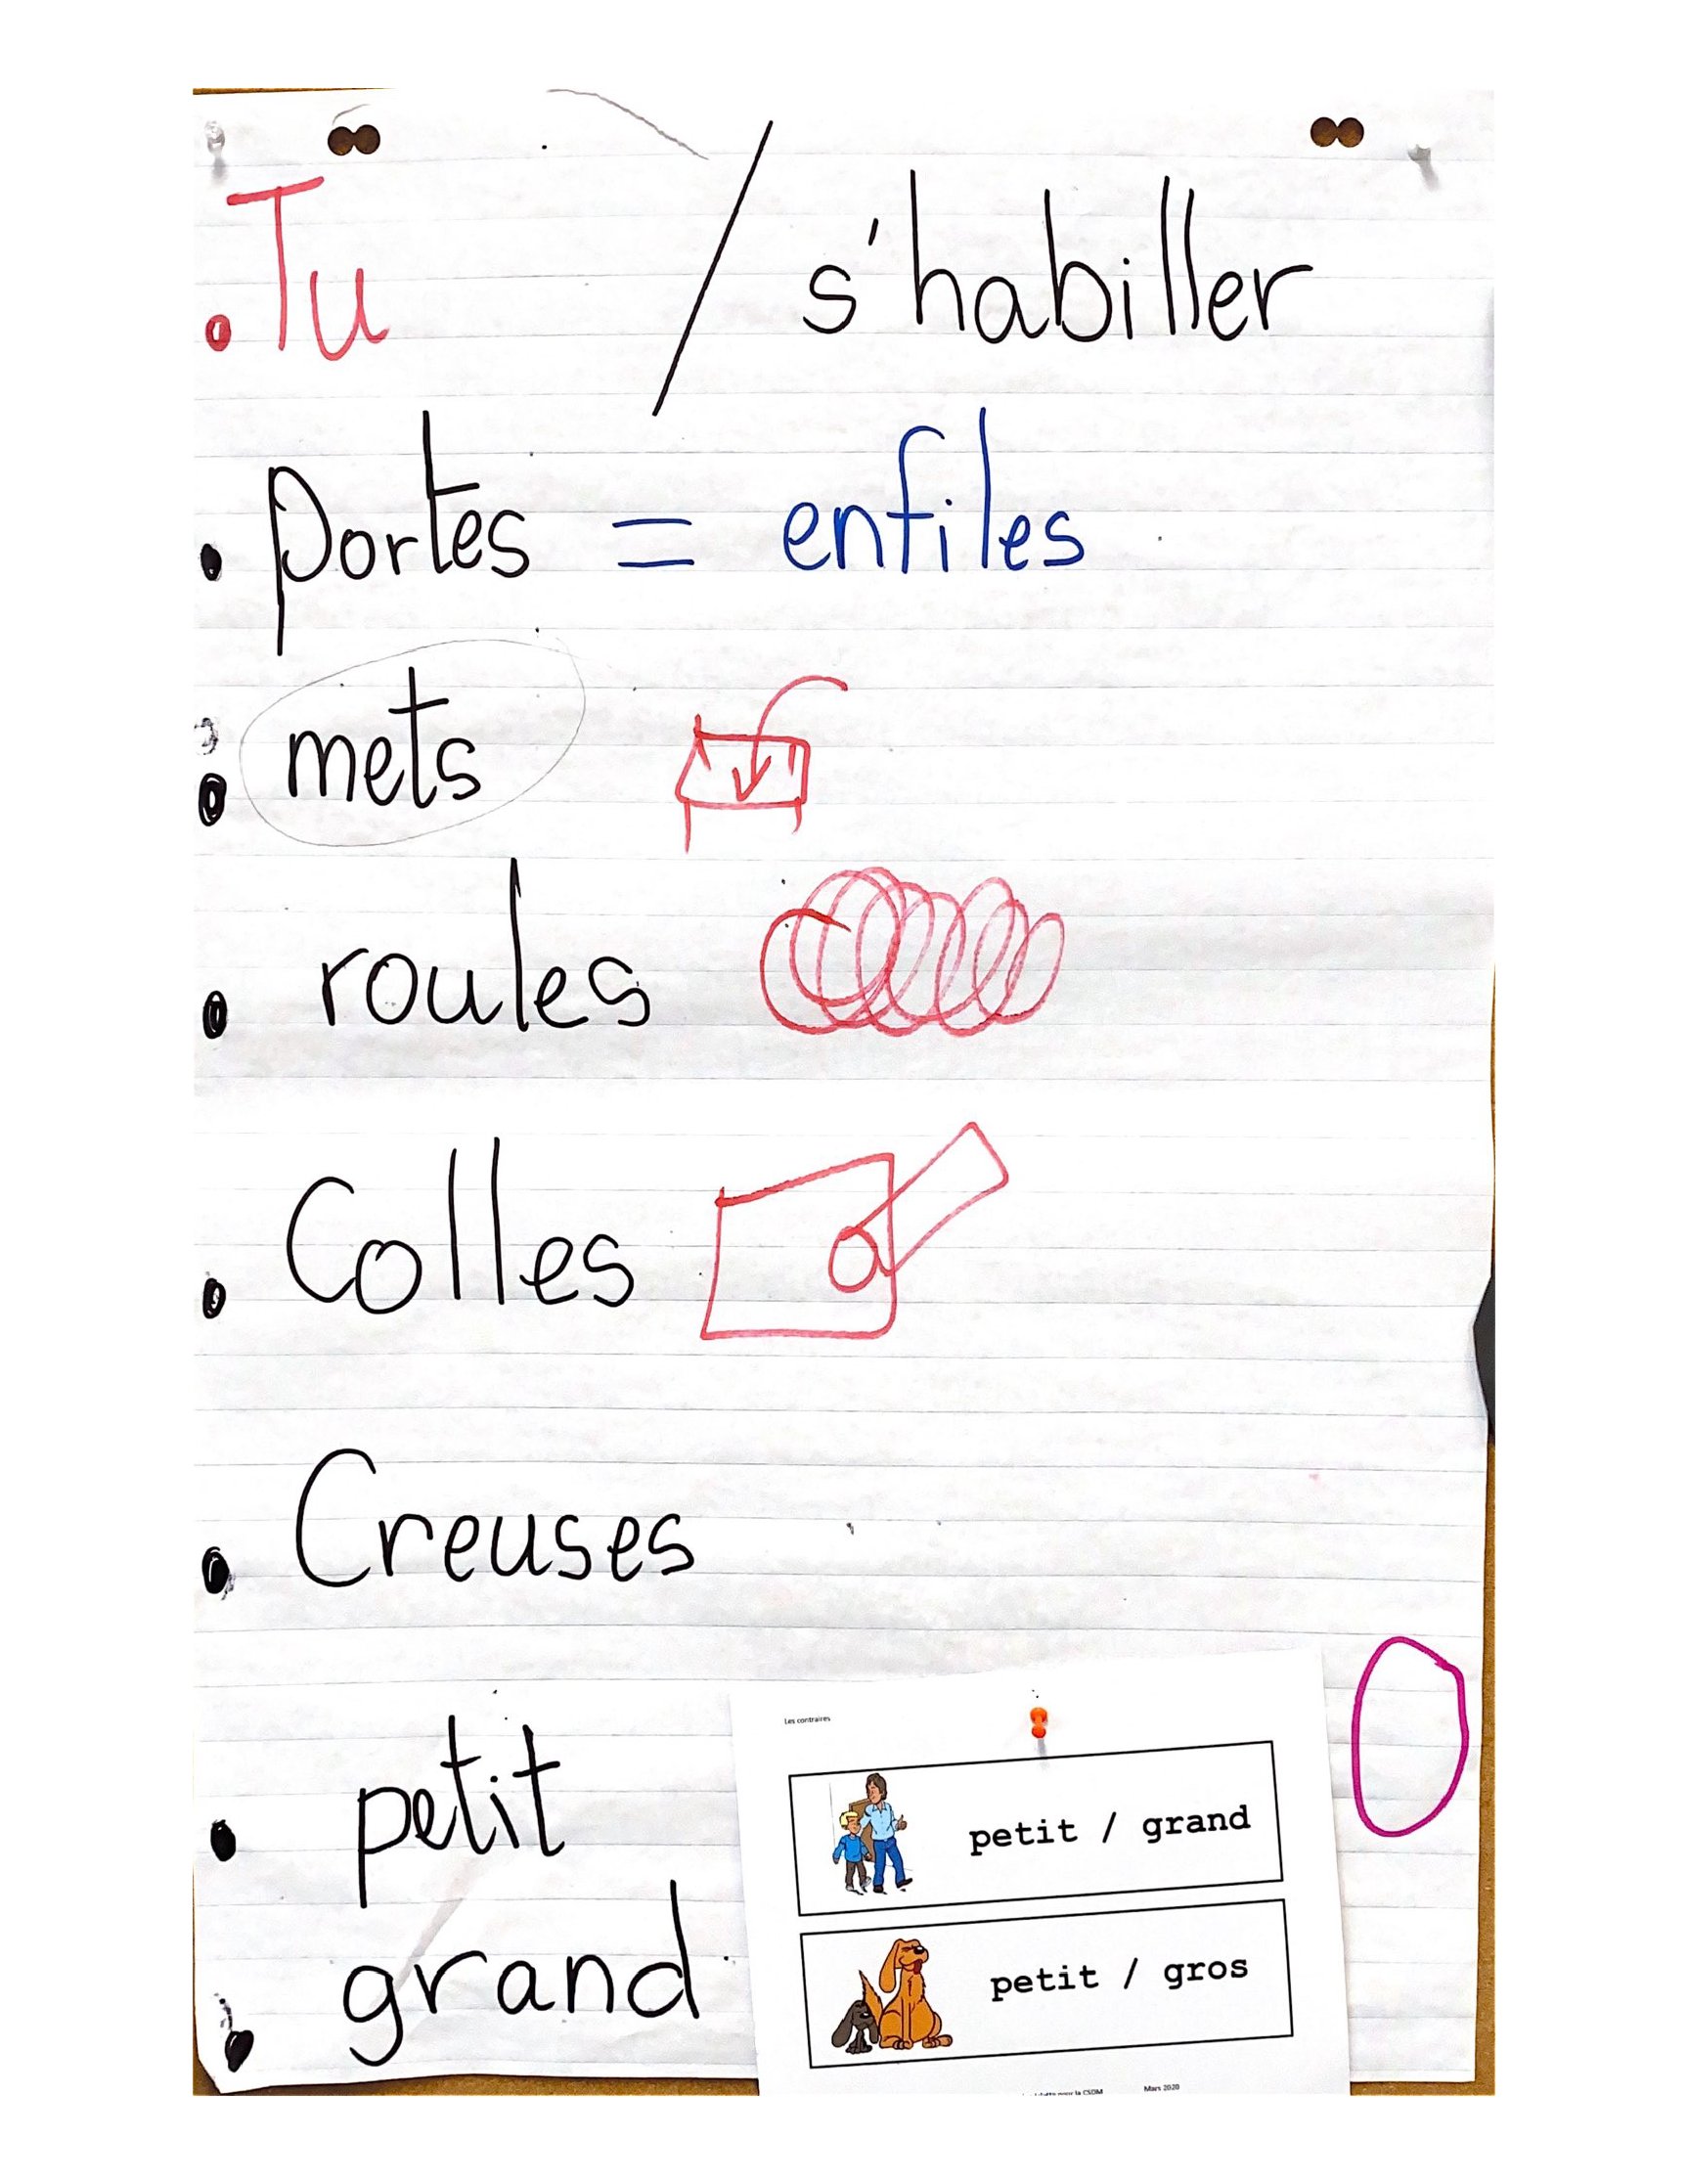 Tu / s'habiller
portes = enfiles
mets
roules
Colles
Creuses
petit
grand
Les contraires
petit / grand
petit / gros
pour la CSDM Mars 2020